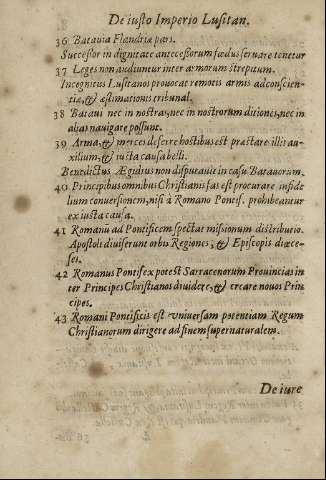 De iusto Imperio Lusitan.
36 Batauia Flandriæ pars.
Successor in dignitate antecessorum fœdus seruare tenetur
37 Leges non audiuntur inter armorum strepitum.
Incognitus Lusitanos prouocat remotis armis ad conscien-
tiæ, & æstimationis tribunal.
38 Bataui nec in nostras, nec in nostrorum ditiones, nec in
alias nauigare possunt.
39 Arma, & merces deferre hostibus est præstare illis au-
xilium, & iusta causa belli.
Benedictus Ægidius non disputauit in casu Batauorum.
40 Principibus omnibus Christianis fas est procurare infide
lium conuersionem, nisi à Romano Pontif. prohibeantur
ex iusta causa.
41 Romanũ ad Pontificem spectat missionum distributio.
Apostoli diuiserunt orbis Regiones, & Episcopis diœce-
ses.
42 Romanus Pontifex potest Sarracenorum Prouincias in
ter Principes Christianos diuidere, & creare nouos Prin
cipes.
43 Romani Pontificis est vniuersam potentiam Regum
Christianorum dirigere ad finem supernaturalem.
De iure